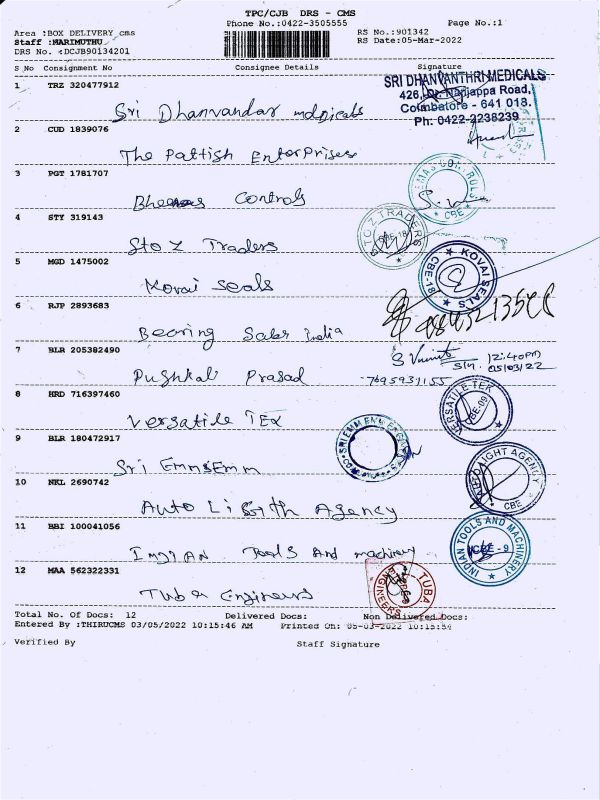 TPC/CJB DRS - CMS
Phone No.:0422-3505555 Page No.:1
Area :BOX DELIVERY cms RS No.:901342
Staff :MARIMUTHU RS Date:05-Mar-2022
DRS No. :DCJB90134201
S No Consignment No Consignee Details Signature
1 TRZ 320477912
Sri Dhanvandar
SRI DHANVANTHRI MEDICALS
426, Dr. Nanjappa Road,
Coimbatore - 641 018.
Ph: 0422-2238239
2 CUD 1839076
The Pattish Enterprises
3 PGT 1781707
Controls
CONTROL
CBE
4 STY 319143
Sto Z Traders
STO Z TRADERS
CBE-18
5 MGD 1475002
Kovai Seals
KOVAI SEALS
CBE-18
6 RJP 2893683
Bearing Sales India
7 BLR 205382490
Pushkal Prasad
12:40PM
05/03/22
7695931155
8 HRD 716397460
Versatile TEX
VERSATILE TEX
CBE-09
9 BLR 180472917
Sri EmmsEmm
10 NKL 2690742
Auto Ligth Agency
LIGHT AGENCY
CBE
11 BBI 100041056
INDIAN Tools And machinery
INDIAN TOOLS AND MACHINERY
CBE - 9
12 MAA 562322331
Tuba Engineers
TUBA ENGINEERS
Total No. Of Docs: 12 Delivered Docs: Non Delivered Docs:
Entered By :THIRUCMS 03/05/2022 10:15:46 AM Printed On: 05-03-2022 10:15:54
Verified By Staff Signature